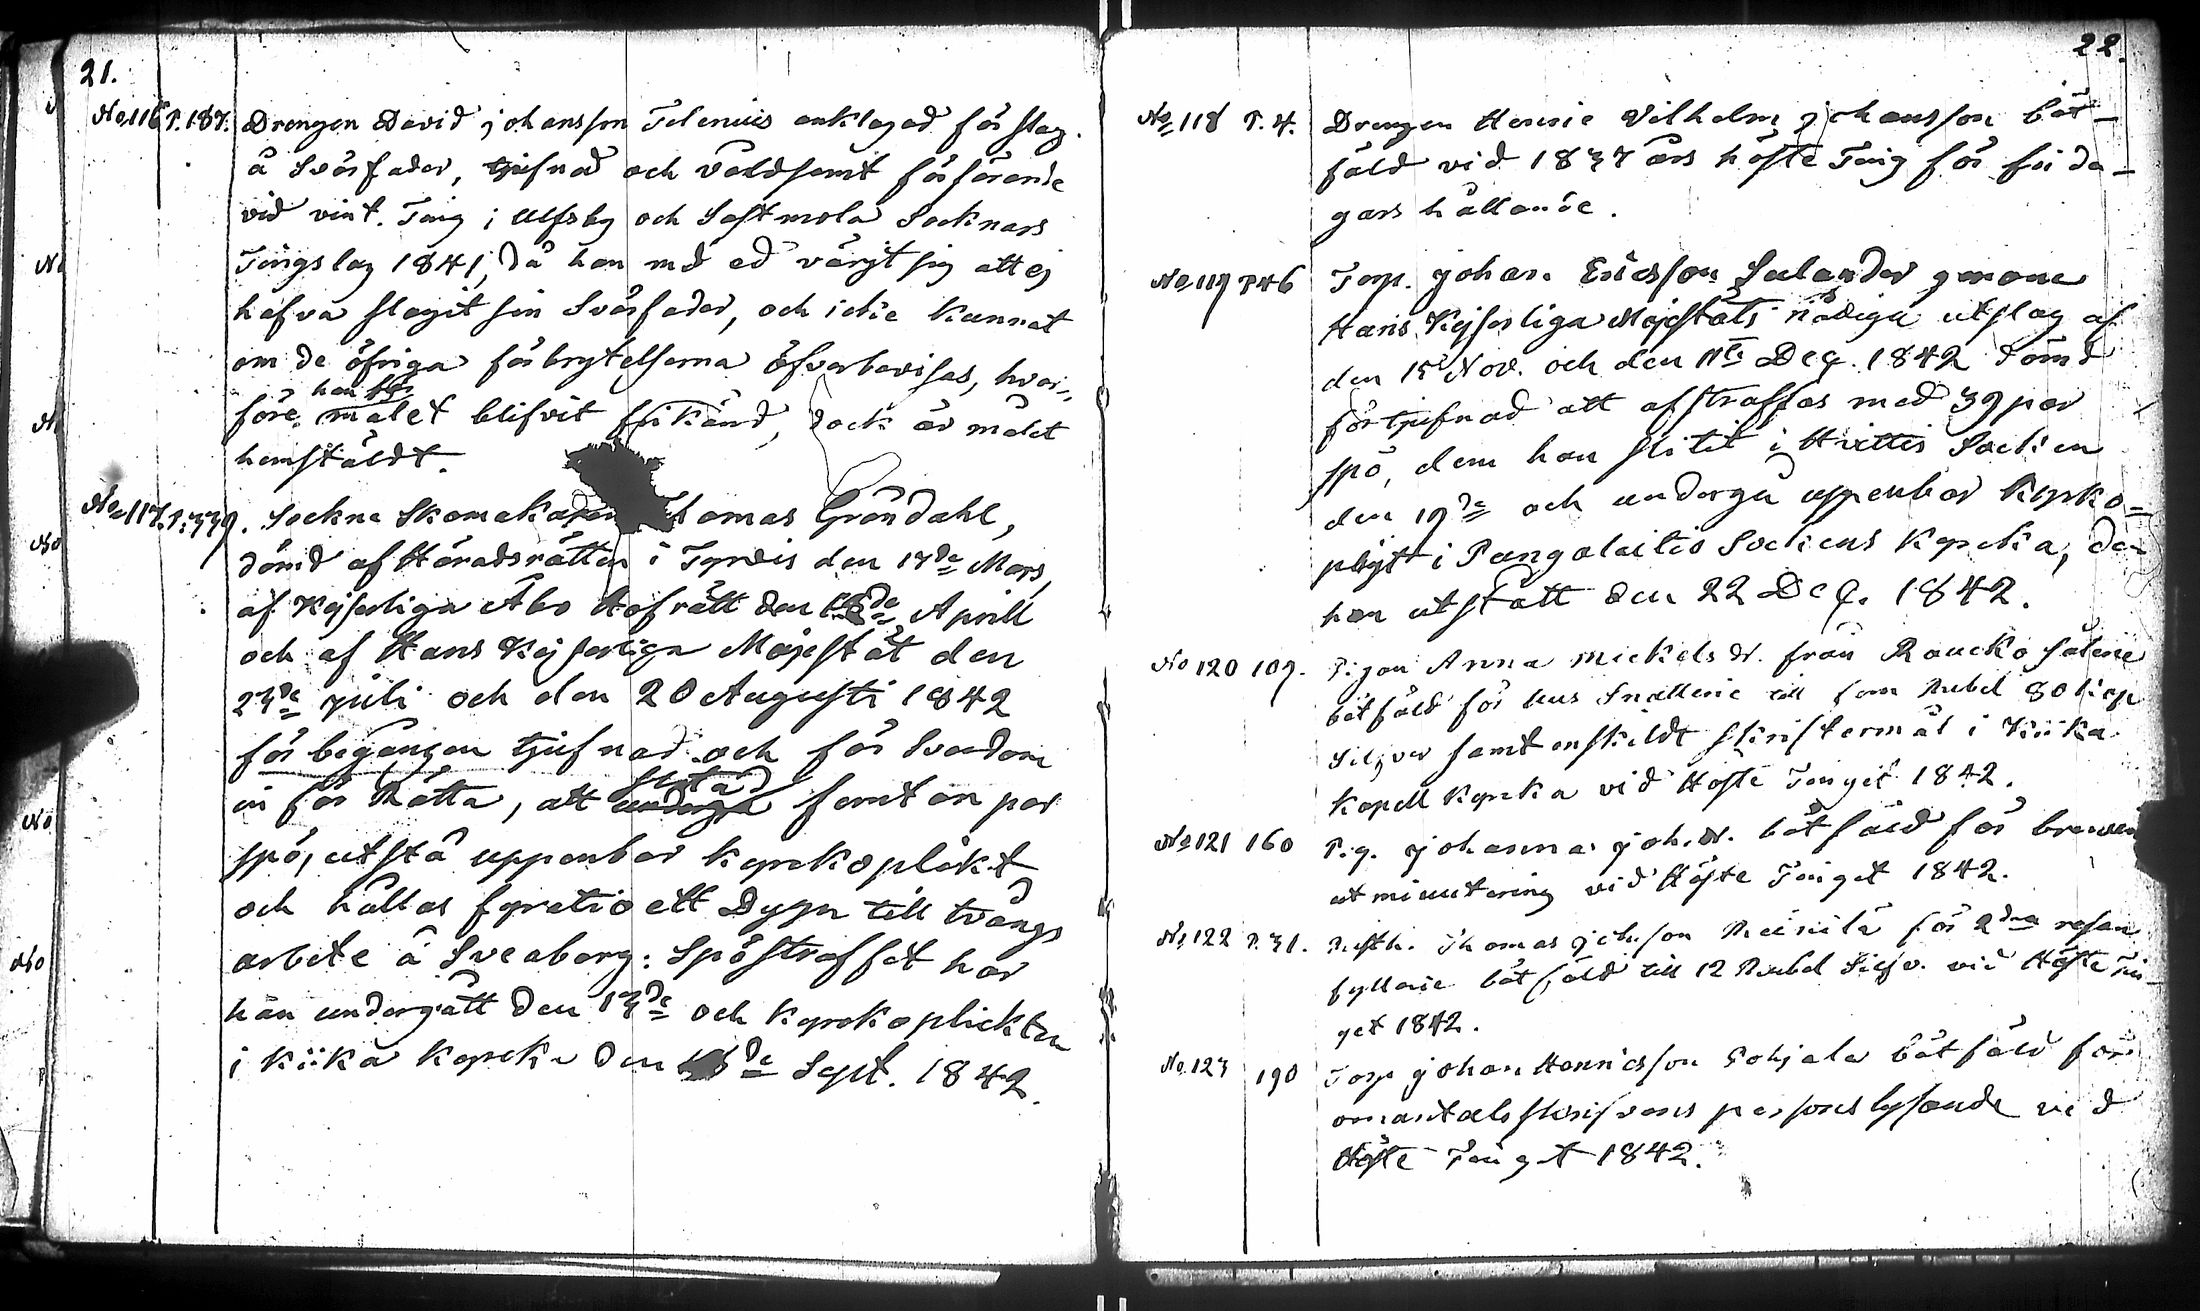 21.
No 116 P. 187. Drengen David Johansson Telenius anklagad för slag
å Svärfader, tjufnad och våldsamt förförande
vid vint. Ting i Ulfsby och Sastmola Socknars
Tingslag 1841, då han md ed värjt sig att ej
hafva slagit sin Svärfader, och icke kunnat
om de öfriga förbrytelserna öfverbevisas, hvar-
före han målet blifvit frikänd, dock är målet
hemstäldt.
No 117. P. 339. Sockne Skomakaren Thomas Gröndahl,
dömd af Häradsrätten i Tyrvis den 17de Mars,
af Kejserliga Åbo Hofrätt den Aprill
och af Hans Kejserliga Majestät den
23de Juli och den 20 Augusti 1842
för begången tjufnad och för Svordom
in för Rätta, att slita femton par
spö, utstå uppenbar kyrkoplikt
och hållas fyratioett Dygn till tvångs
arbete å Sveaborg: Spöstraffet har
han undergått den 13de och kyrkoplickten
i Kiika kyrcka den Sept. 1842.
22.
No 118 P. 4. Drengen Henric Vilhelm Johansson böt-
fäld vid 1837 års höste Ting för fri da-
gars hållande.
No 119 P 46 Torp. Johan Ericsson Sulander genom
Hans Kejserliga Majestäts nådiga utslag af
den 15 Nov. och den 11te Dec. 1842 dömd
för tjufnad att afstraffas med 39 par
spö, dem han slitit i Hvittis Socken
den 19de och undergå uppenbar kyrko-
pligt i Pungalaitio Sockens kyrcka, den
han utstått den 22 Dec. 1842.
No 120 109. P: gan Anna Mickels dr. från Raucko
bötfäld för till fem Rubel 80 kop
Silfver samt enskildt skriftermål i Kiika
kapell kyrcka vid Höste Tinget 1842.
No 121 160 P. g. Johanna Joh. dr. bötfäld för
utminutering vid Höste Tinget 1842.
No 122 P. 31. Rusth. Thomas Johsson för 2dra resan
fylleri bötfäld till 12 Rubel Silfv. vid Höste Tin-
get 1842.
No. 123 190 Torp Johan Henricsson Pohjala bötfäld för
omantalsskrifvens persons hysande vid
Höste Tinget 1842.